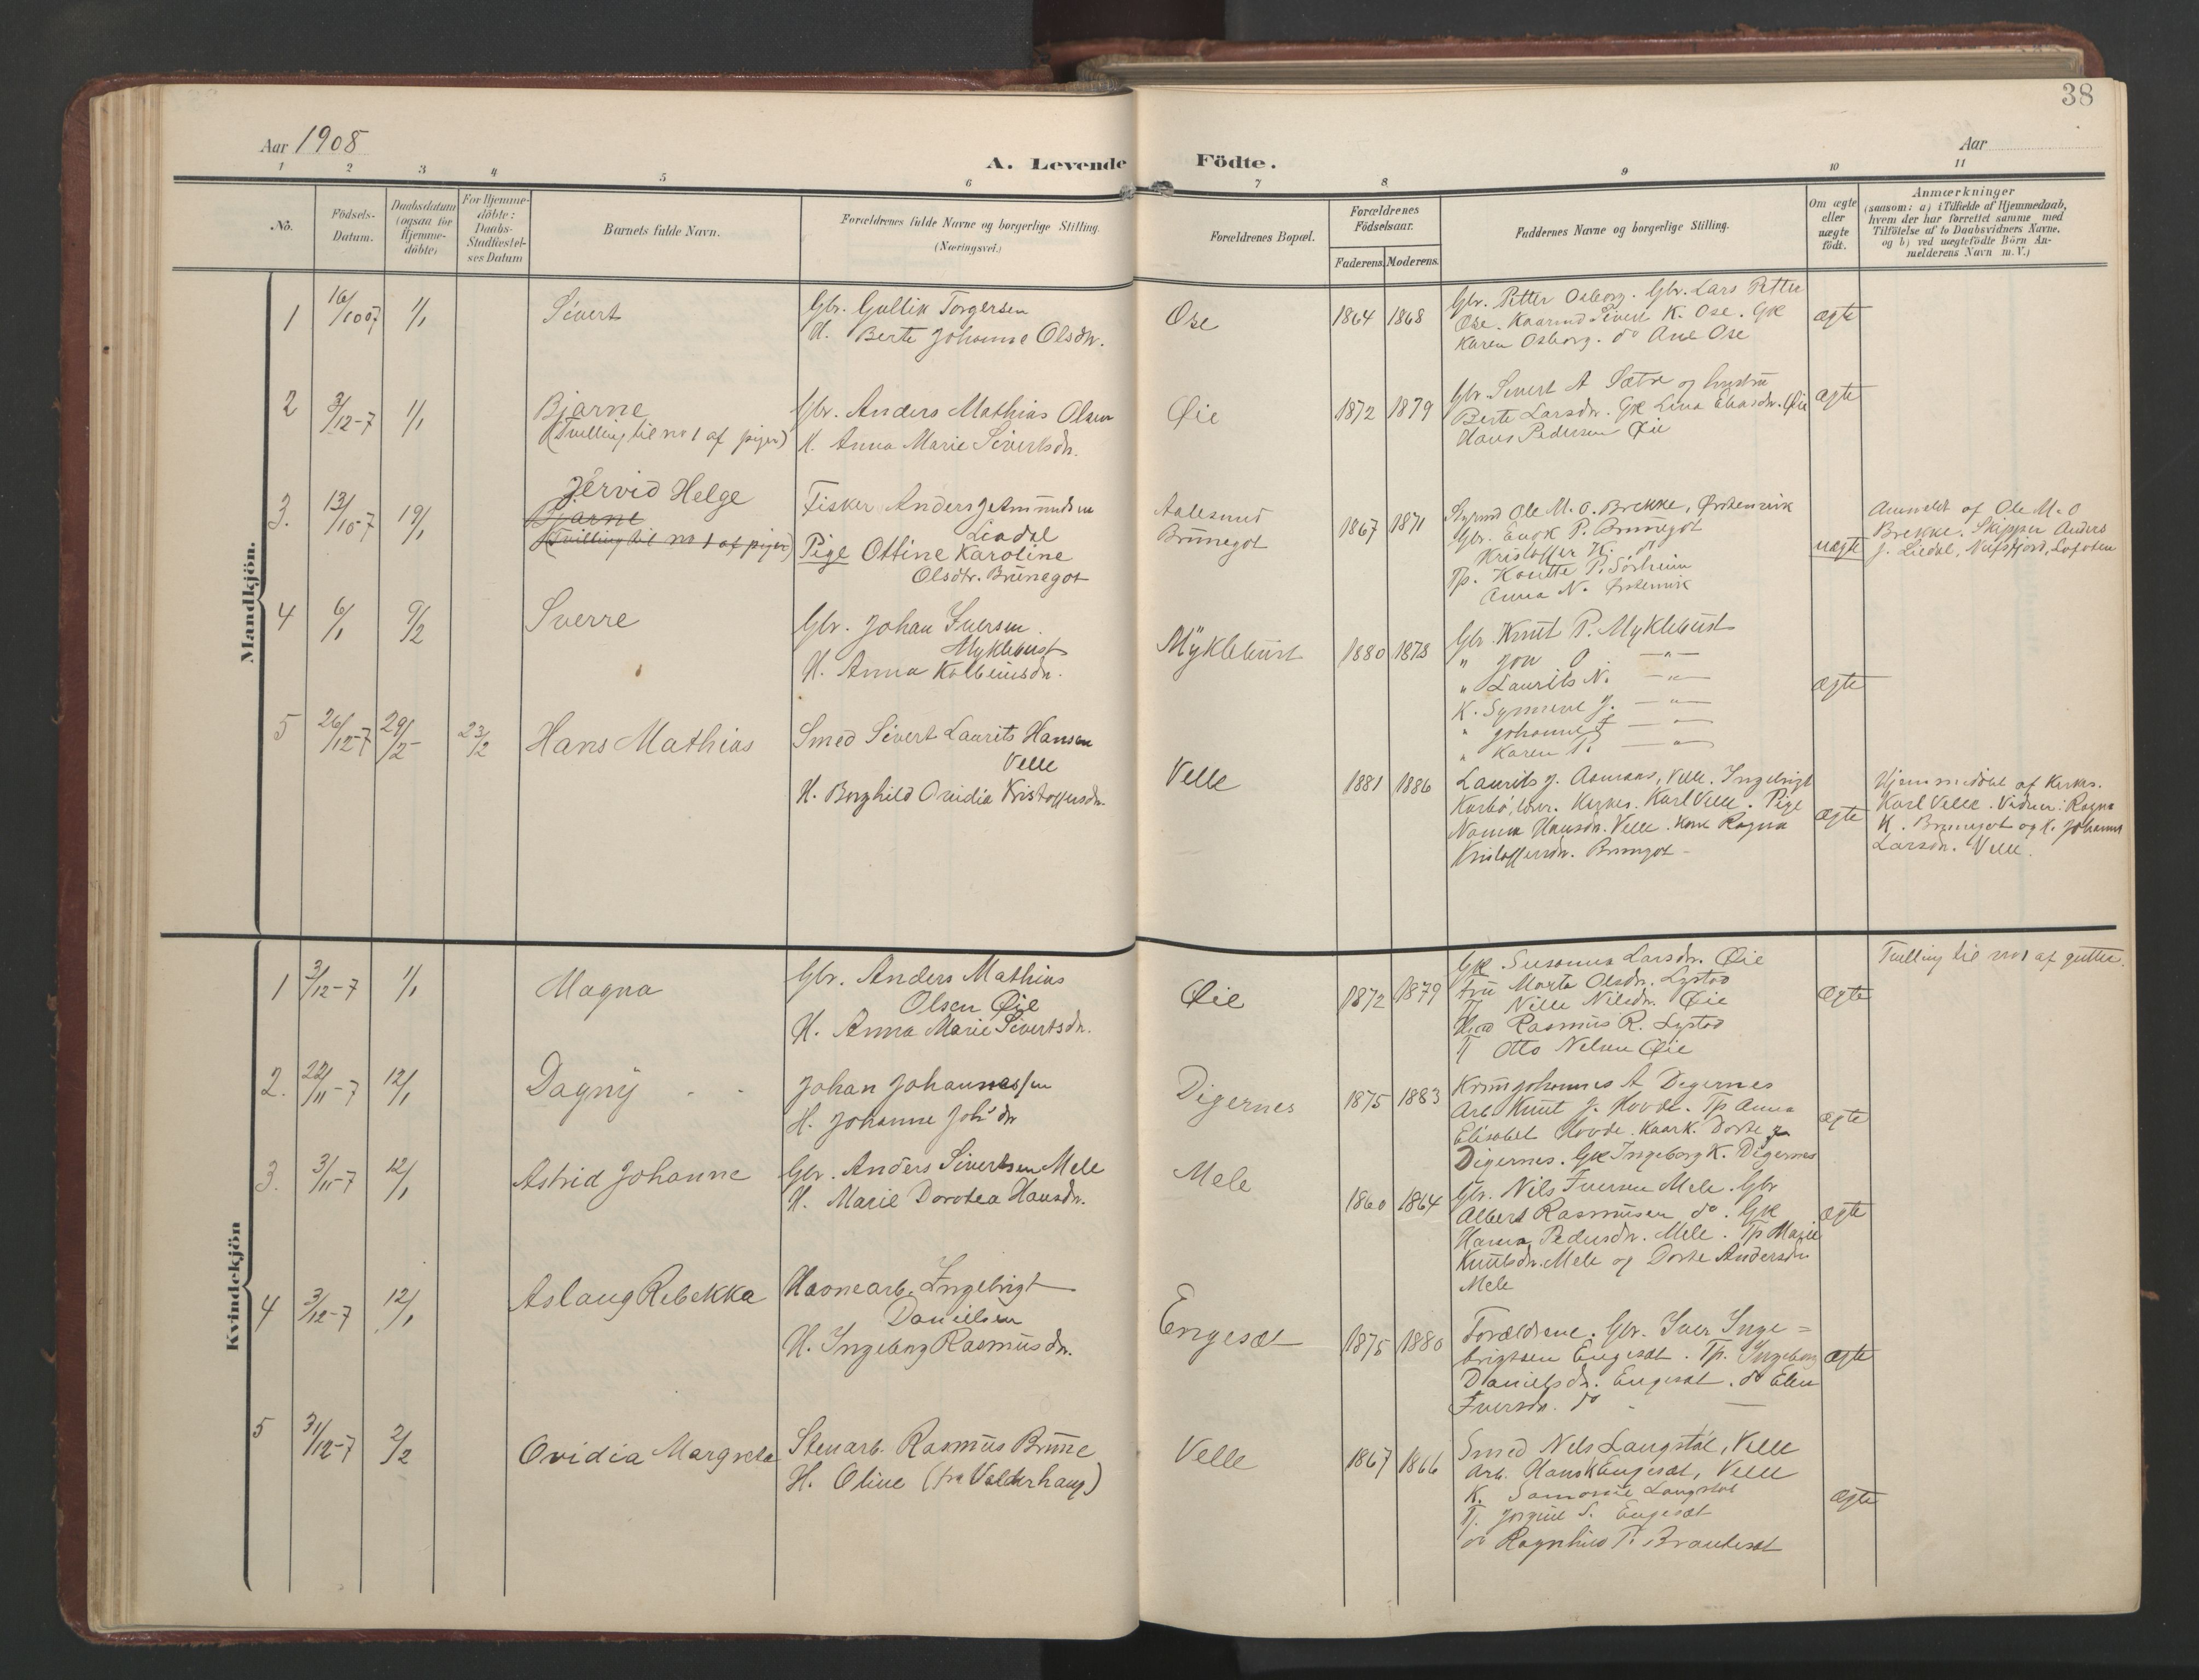 38
Aar 1908
Aar
A. Levende Födte.
1 2 3 4 5 6 7 8 9 10 11
No.
Födsels-
Datum.
Daabsdatum
(ogsaa for
Hjemme-
döbte)
For Hjemme-
döbte:
Daabs-
Stadfæstel-
ses Datum
Barnets fulde Navn.
Forældrenes fulde Navne og borgerlige Stilling.
(Næringsvei.)
Forældrenes Bopæl.
Forældrenes
Födselsaar.
Faderens. Moderens.
Faddernes Navne og borgerlige Stilling.
Om ægte
eller
uægte
födt.
Anmærkninger
(saasom: a) i Tilfælde af Hjemmedaab,
hvem der har forrettet samme med
Tilföielse af to Daabsvidners Navne,
og b) ved uægtefödte Börn An-
melderens Navn m.V.)
Mandkjön.
1 16/10 07 1/1 Sivert
Gbr. Gullik Torgersen
H. Berte Johanne Olsdtr.
Ose
1864 1868
Gbr. Petter Osborg. Gbr. Lars Petter
Ose. Kaarmd Sivert K. Ose. Gk
Karen Osborg. do Ane Ose
ægte
2 3/12-7 1/1 Bjarne
(Tvilling til no 1 af piger)
Gbr. Anders Mathias Olsen
H. Anna Marie Sivertsdr.
Øie
1872 1879
Gbr. Sivert A Sætre og hustru
Berte Larsdr. Gk Lina Eliasdr. Øie
Hans Pedersen Øie
ægte
3. 13/10-7 19/1 Jervid Helge
Bjarne
(Tvilling til no 1 af piger)
Fisker Anders J Amundsen
Liadal
Pige Ottine Karoline
Olsdtr. Brunegot
Aalesund
Brunegot
1867 1871
Styrmd Ole M. O. Brekke, Ørstenvik
Gbr. Enok P. Brunegot
Kristoffer K. do
Tp. Knutte P. Sørheim
Anna N. Ørstenvik
uægte
Anmeldt af Ole M. O
Brekke. Skipper Anders
J. Liedal, Nufsfjord, Lofoten
4 6/1 9/2 Sverre
Gbr. Johan Iversen
Myklebust
H. Anna Kolbeinsdr.
Myklebust
1880 1878
Gbr. Knut P. Myklebust
" Jon O. — " —
" Laurits N. — " —
K. Synneve J. — " —
" Johanne F — " —
" Karen P. — " —
ægte
5 26/12-7 29/2 23/2 Hans Mathias
Smed Sivert Laurits Hansen
Velle
H. Borghild Ovidia Kristoffersdr.
Velle
1881 1886
Laurits J. Aamaas, Velle. Ingebrigt
Karbø, Kirkes. Karl Velle. Pige
Hansdr. Velle. Kone Ragna
Kristoffersdr. Brungot
ægte
Hjemmedøbt af Kirkes.
Karl Velle. Vidner: Ragna
K. Brunegot og K. Johanne
Larsdr. Velle.
Kvindekjön
1 3/12-7 1/1 Magna
Gbr. Anders Mathias
Olsen Øie
H. Anna Marie Sivertsdr.
Øie
1872 1879
Gk Susanna Larsdr. Øie
Fru Marta Olsdr. Lystad
Tj Nille Nilsdr. Øie
Rasmus R. Lystad
Tj Otto Nelsen Øie
ægte
Tvilling til no 1 af gutter.
2. 22/11-7 12/1 Dagny
Johan Johannessen
H. Johanne Johs dr
Digernes
1875 1883
Johannes A Degernes
Arb Knut J. Hovde. Tp Anna
Elisabet Hovde. Kaark. Dorte
Digernes. Gk Ingeborg K. Digernes
ægte
3. 3/11-7 12/1 Astrid Johanne
Gbr. Anders Sivertsen Mele
H. Marie Dorotea Hansdr.
Mele
1860 1864
Gbr. Nils Iversen Mele. Gbr
Albert Rasmusen do. Gk
Hanna Pedersdr. Mele. Tp Marie
Knutsdr. Mele og Dorte Andersdr
Mele
ægte
4 3/12-7 12/1 Aslaug Rebekka
Havnearb. Ingebrigt
Danielsen
H. Ingeborg Rasmusdr.
Engesæt
1875 1880
Forældrene. Gbr. Iver Inge=
brigtsen Engesæt. Tp. Ingeborg
Danielsdr. Engesæt. do Elen
Iversdr. do —
ægte
5 31/12-7 2/2 Ovidia Margreta
Stenarb. Rasmus Brune
H. Oline (fra Valderhaug)
Velle
1867 1866
Smed Nels Langstøl, Velle
Arb. Hans K Engesæt, Velle
K. Samorine Langstøl
Tj. Jorgine S. Engesæt
do Ragnhild P. Brautesæt
ægte